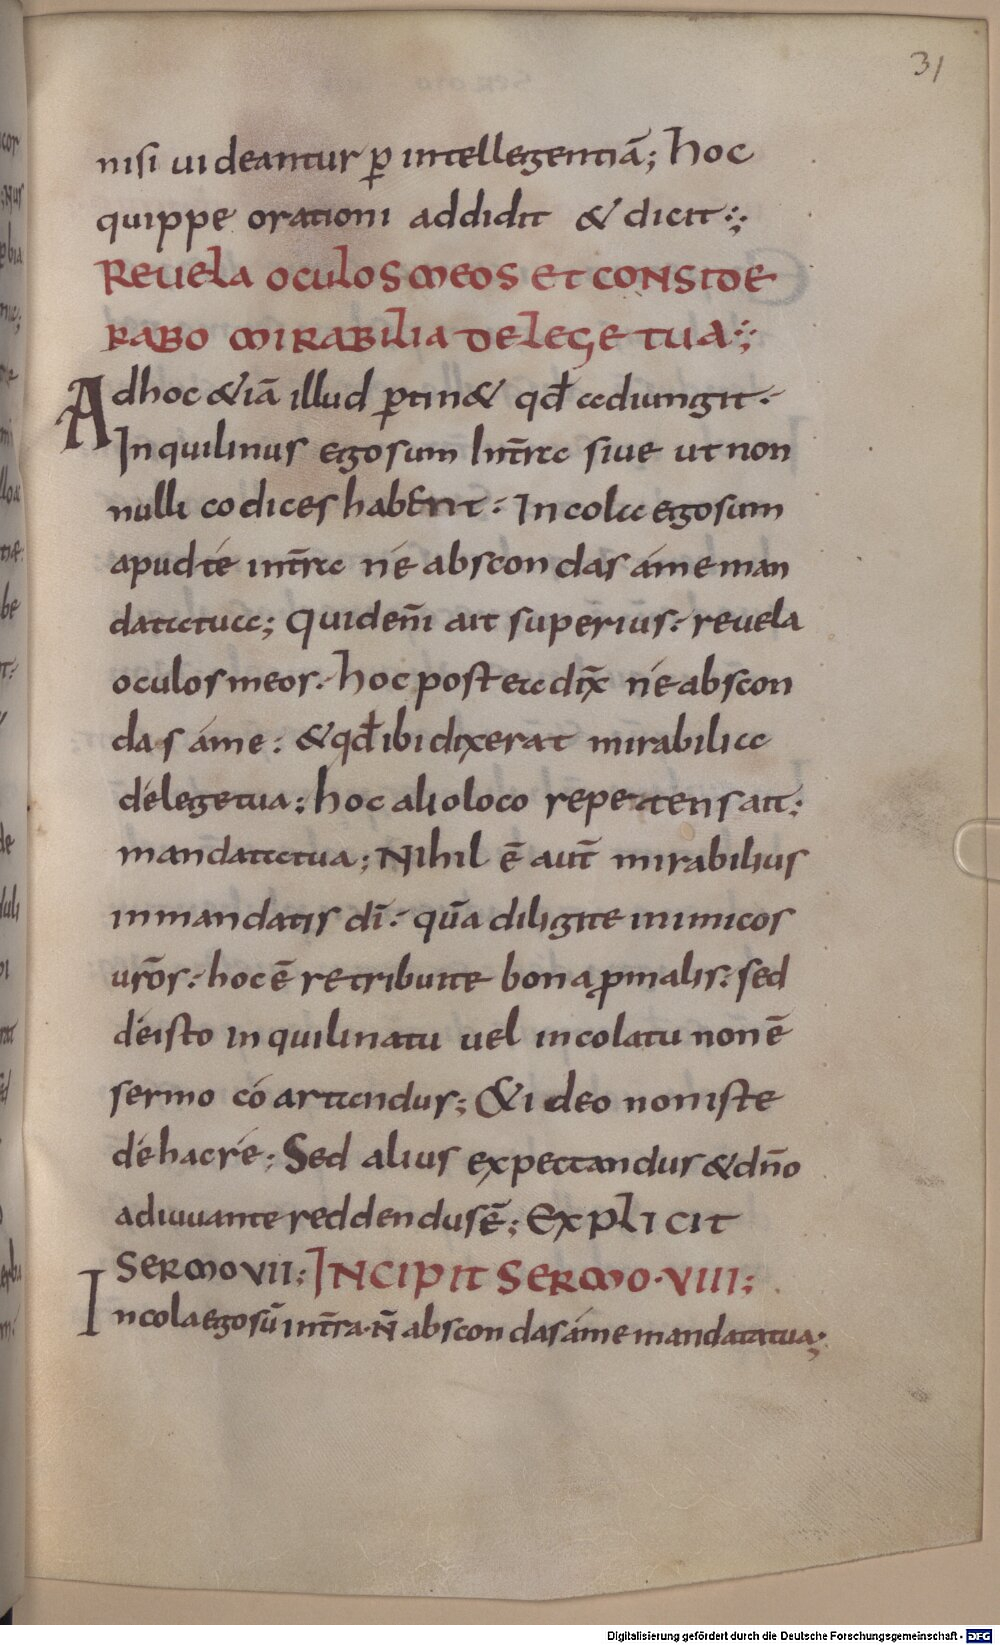 31
nisi uideantur p̱ intellegentiā; hoc
quippe orationi addidit & dicit:;
REVELA OCULOS MEOS ET CONSIDE
RABO MIRABILIA DE LEGE TUA:;
Adhoc &iā illud p̱tin& qđ adiungit.
Inquilinus ego sum In t̄rra siue ut non
nulli codices habent: Incola ego sum
apud té in t̄rra né abscondas áme man
data tua; Quid eni̅ ait superius: reuela
oculos meos. hoc post ea dix̄ né abscon
das áme: & qđ ibi dixerat mirabilia
délege tua; hoc alio loco repetens ait:
mandata tua; Nihil ē aut̄ mirabilius
in mandatis dī. qūa diligite inimicos
ur̄os: hoc ē retribuite bona p̱ malis: sed
déisto inquilinatu uel incolatu non ē
sermo có artandus; & ideo non iste
dé hac ré; Sed alius expectandus & dn̄o
adiuuante reddendus ē; EXPLICIT
SERMO VII; INCIPIT SERMO·VIII;
Incola ego sū in t̄rra. N̄ abscondas áme mandata tua;
Digitalisierung gefördert durch die Deutsche Forschungsgemeinschaft - DFG